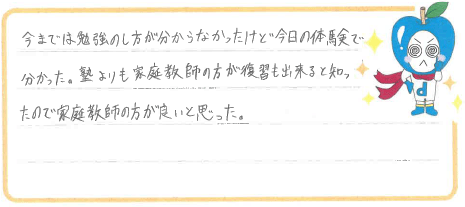 今までは勉強のし方が分からなかったけど今日の体験で
分かった。塾よりも家庭教師の方が復習も出来ると知っ
たので家庭教師の方が良いと思った。